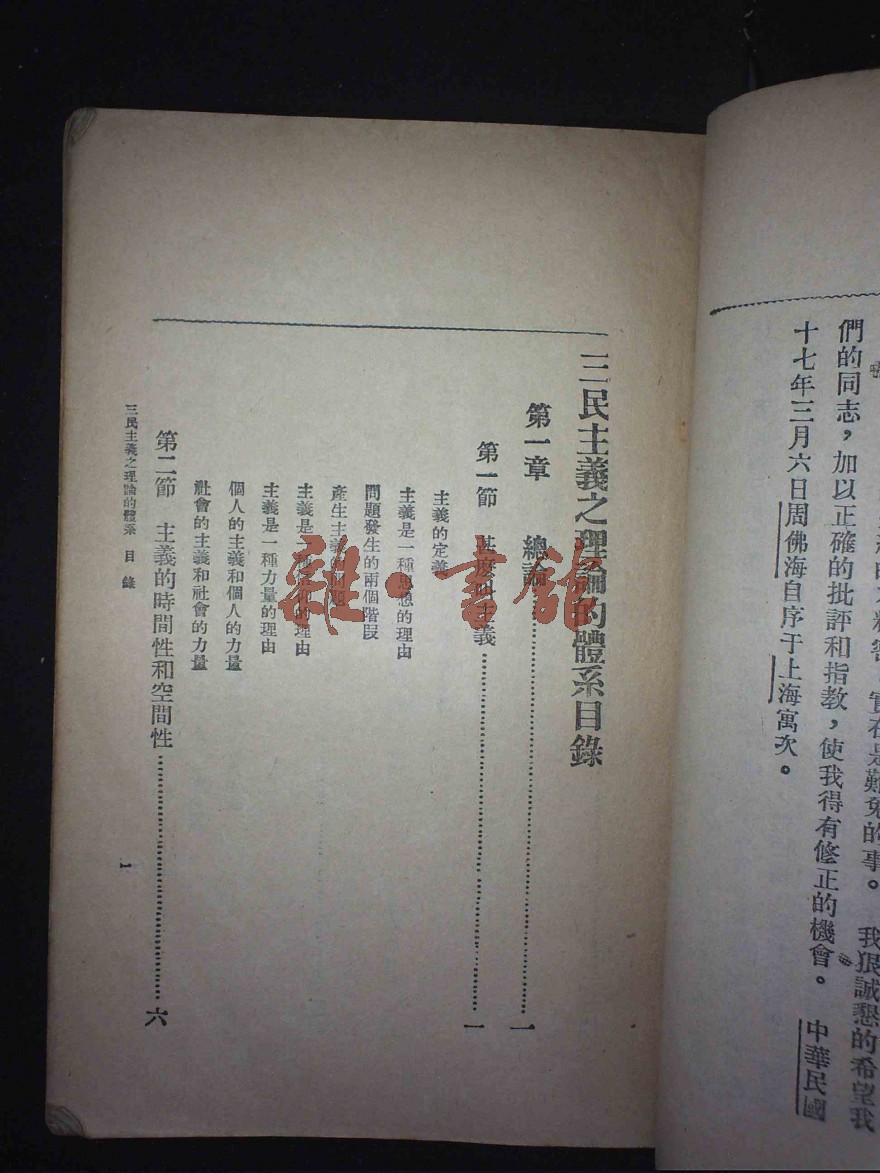 實在是難免的事。 我狠誠懇的希望我
們的同志，加以正確的批評和指教，使我得有修正的機會。 中華民國
十七年三月六日周佛海自序于上海寓次。
三民主義之理論的體系目錄
第一章 總論……一
第一節 甚麽叫主義……一
主義的定義
主義是一種思想的理由
問題發生的兩個階段
產生主義的問題
主義是一種信仰的理由
主義是一種力量的理由
個人的主義和個人的力量
社會的主義和社會的力量
第二節 主義的時間性和空間性……六
三民主義之理論的體系 目錄
1
雜·書館